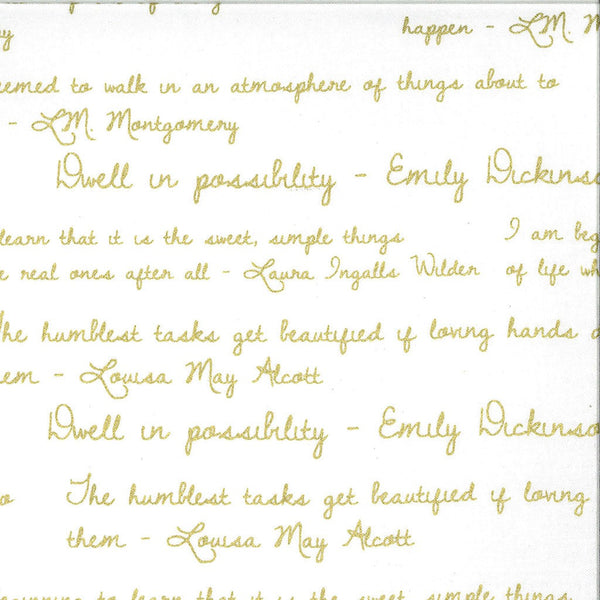 happen - L.M.
seemed to walk in an atmosphere of things about to
- L.M. Montgomery
Dwell in possibility - Emily Dickinso
learn that it is the sweet, simple things
I am beg
e real ones after all - Laura Ingalls Wilder
of life wh
The humblest tasks get beautified if loving hands
hem - Louisa May Alcott
Dwell in possibility - Emily Dickinso
o
The humblest tasks get beautified if loving
them - Louisa May Alcott
eginning to learn that it is the sweet, simple things